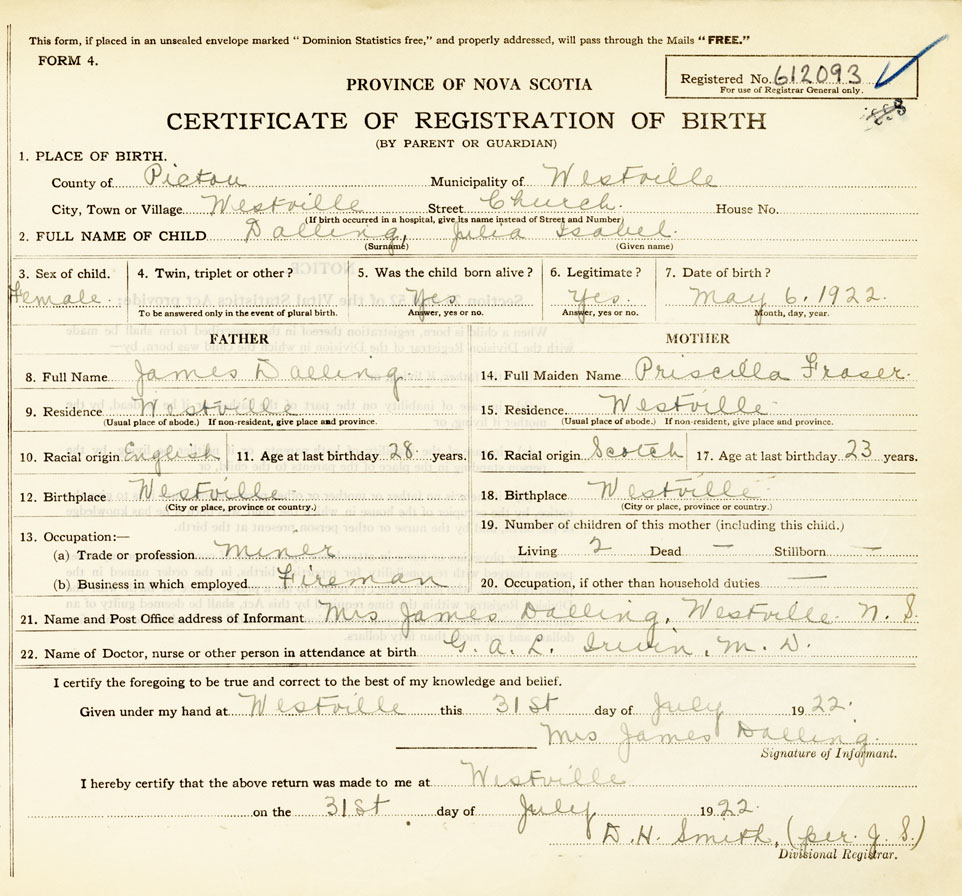 This form, if placed in an unsealed envelope marked "Dominion Statistics free," and properly addressed, will pass through the Mails "FREE."
FORM 4.
Registered No. 612093
For use of Registrar General only.
PROVINCE OF NOVA SCOTIA
CERTIFICATE OF REGISTRATION OF BIRTH
(BY PARENT OR GUARDIAN)
1. PLACE OF BIRTH.
County of Pictou Municipality of Westville
City, Town or Village Westville Street Church. House No.
(If birth occurred in a hospital, give its name instead of Street and Number)
2. FULL NAME OF CHILD Dalling, Julia Isabel.
(Surname) (Given name)
3. Sex of child. 4. Twin, triplet or other? 5. Was the child born alive? 6. Legitimate? 7. Date of birth?
Female. Yes Yes. May 6. 1922.
To be answered only in the event of plural birth. Answer, yes or no. Answer, yes or no. Month, day, year.
FATHER MOTHER
8. Full Name James Dalling. 14. Full Maiden Name Priscilla Fraser.
9. Residence Westville 15. Residence. Westville
(Usual place of abode.) If non-resident, give place and province. (Usual place of abode.) If non-resident, give place and province.
10. Racial origin English 11. Age at last birthday 28 years. 16. Racial origin Scotch 17. Age at last birthday 23 years.
12. Birthplace Westville 18. Birthplace Westville
(City or place, province or country.) (City or place, province or country.)
19. Number of children of this mother (including this child.)
13. Occupation:—
(a) Trade or profession Miner Living 2 Dead — Stillborn —
(b) Business in which employed Fireman 20. Occupation, if other than household duties —
21. Name and Post Office address of Informant Mrs James Dalling, Westville N. S.
22. Name of Doctor, nurse or other person in attendance at birth G. A. L. Irwin, M. D.
I certify the foregoing to be true and correct to the best of my knowledge and belief.
Given under my hand at Westville this 31st day of July 1922.
Mrs James Dalling.
Signature of Informant.
I hereby certify that the above return was made to me at Westville
on the 31st day of July 1922.
D. H. Smith, (per. J. S.)
Divisional Registrar.